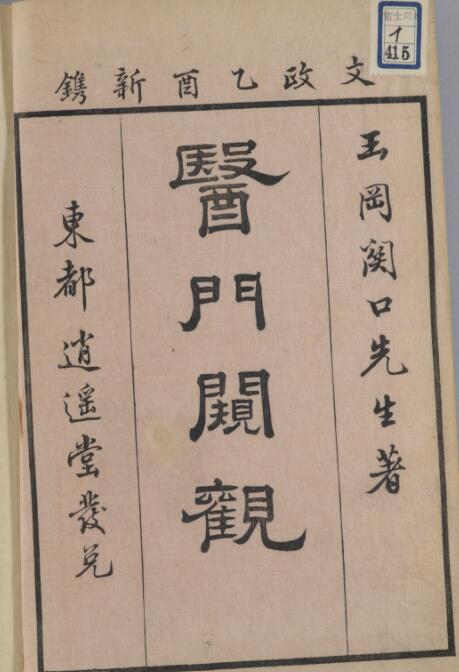 文政乙酉新鐫
玉岡関口先生著
醫門闚觀
東都逍遥堂發兌
富士川本
イ
415